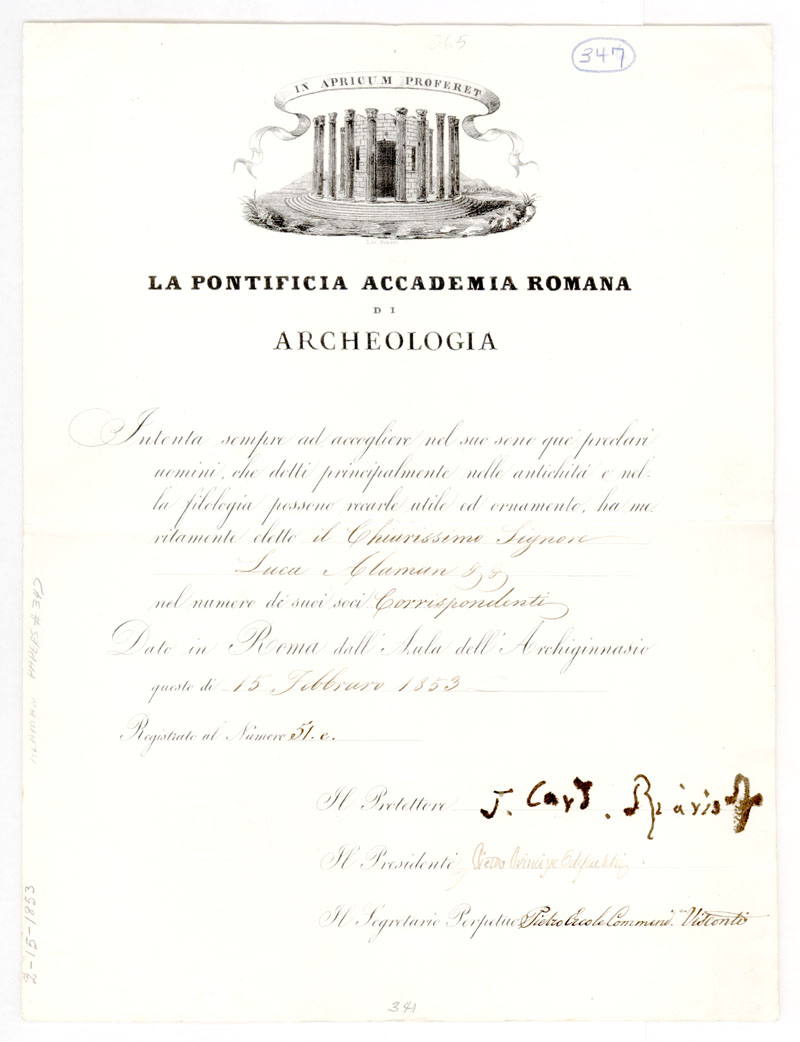 365
347
IN APRICUM PROFERET
LA PONTIFICIA ACCADEMIA ROMANA
DI
ARCHEOLOGIA
Intenta sempre ad accogliere nel suo seno que' preclari
uomini, che dotti principalmente nelle antichità e nel-
la filologia possono recarle utile ed ornamento, ha me-
ritamente eletto il Chiarissimo Signor
Luca Alaman
nel numero de' suoi soci Corrispondenti
Dato in Roma dall' Aula dell' Archiginnasio
questo dì 15 Febbraro 1853
Registrato al Número 51. c.
Il Protettore J. Card. Riario
Il Presidente Pietro Principe
Il Segretario Perpetuo Pietro Ercole Commend. Visconti
341
ALAMAN PAPERS # 347
2-15-1853